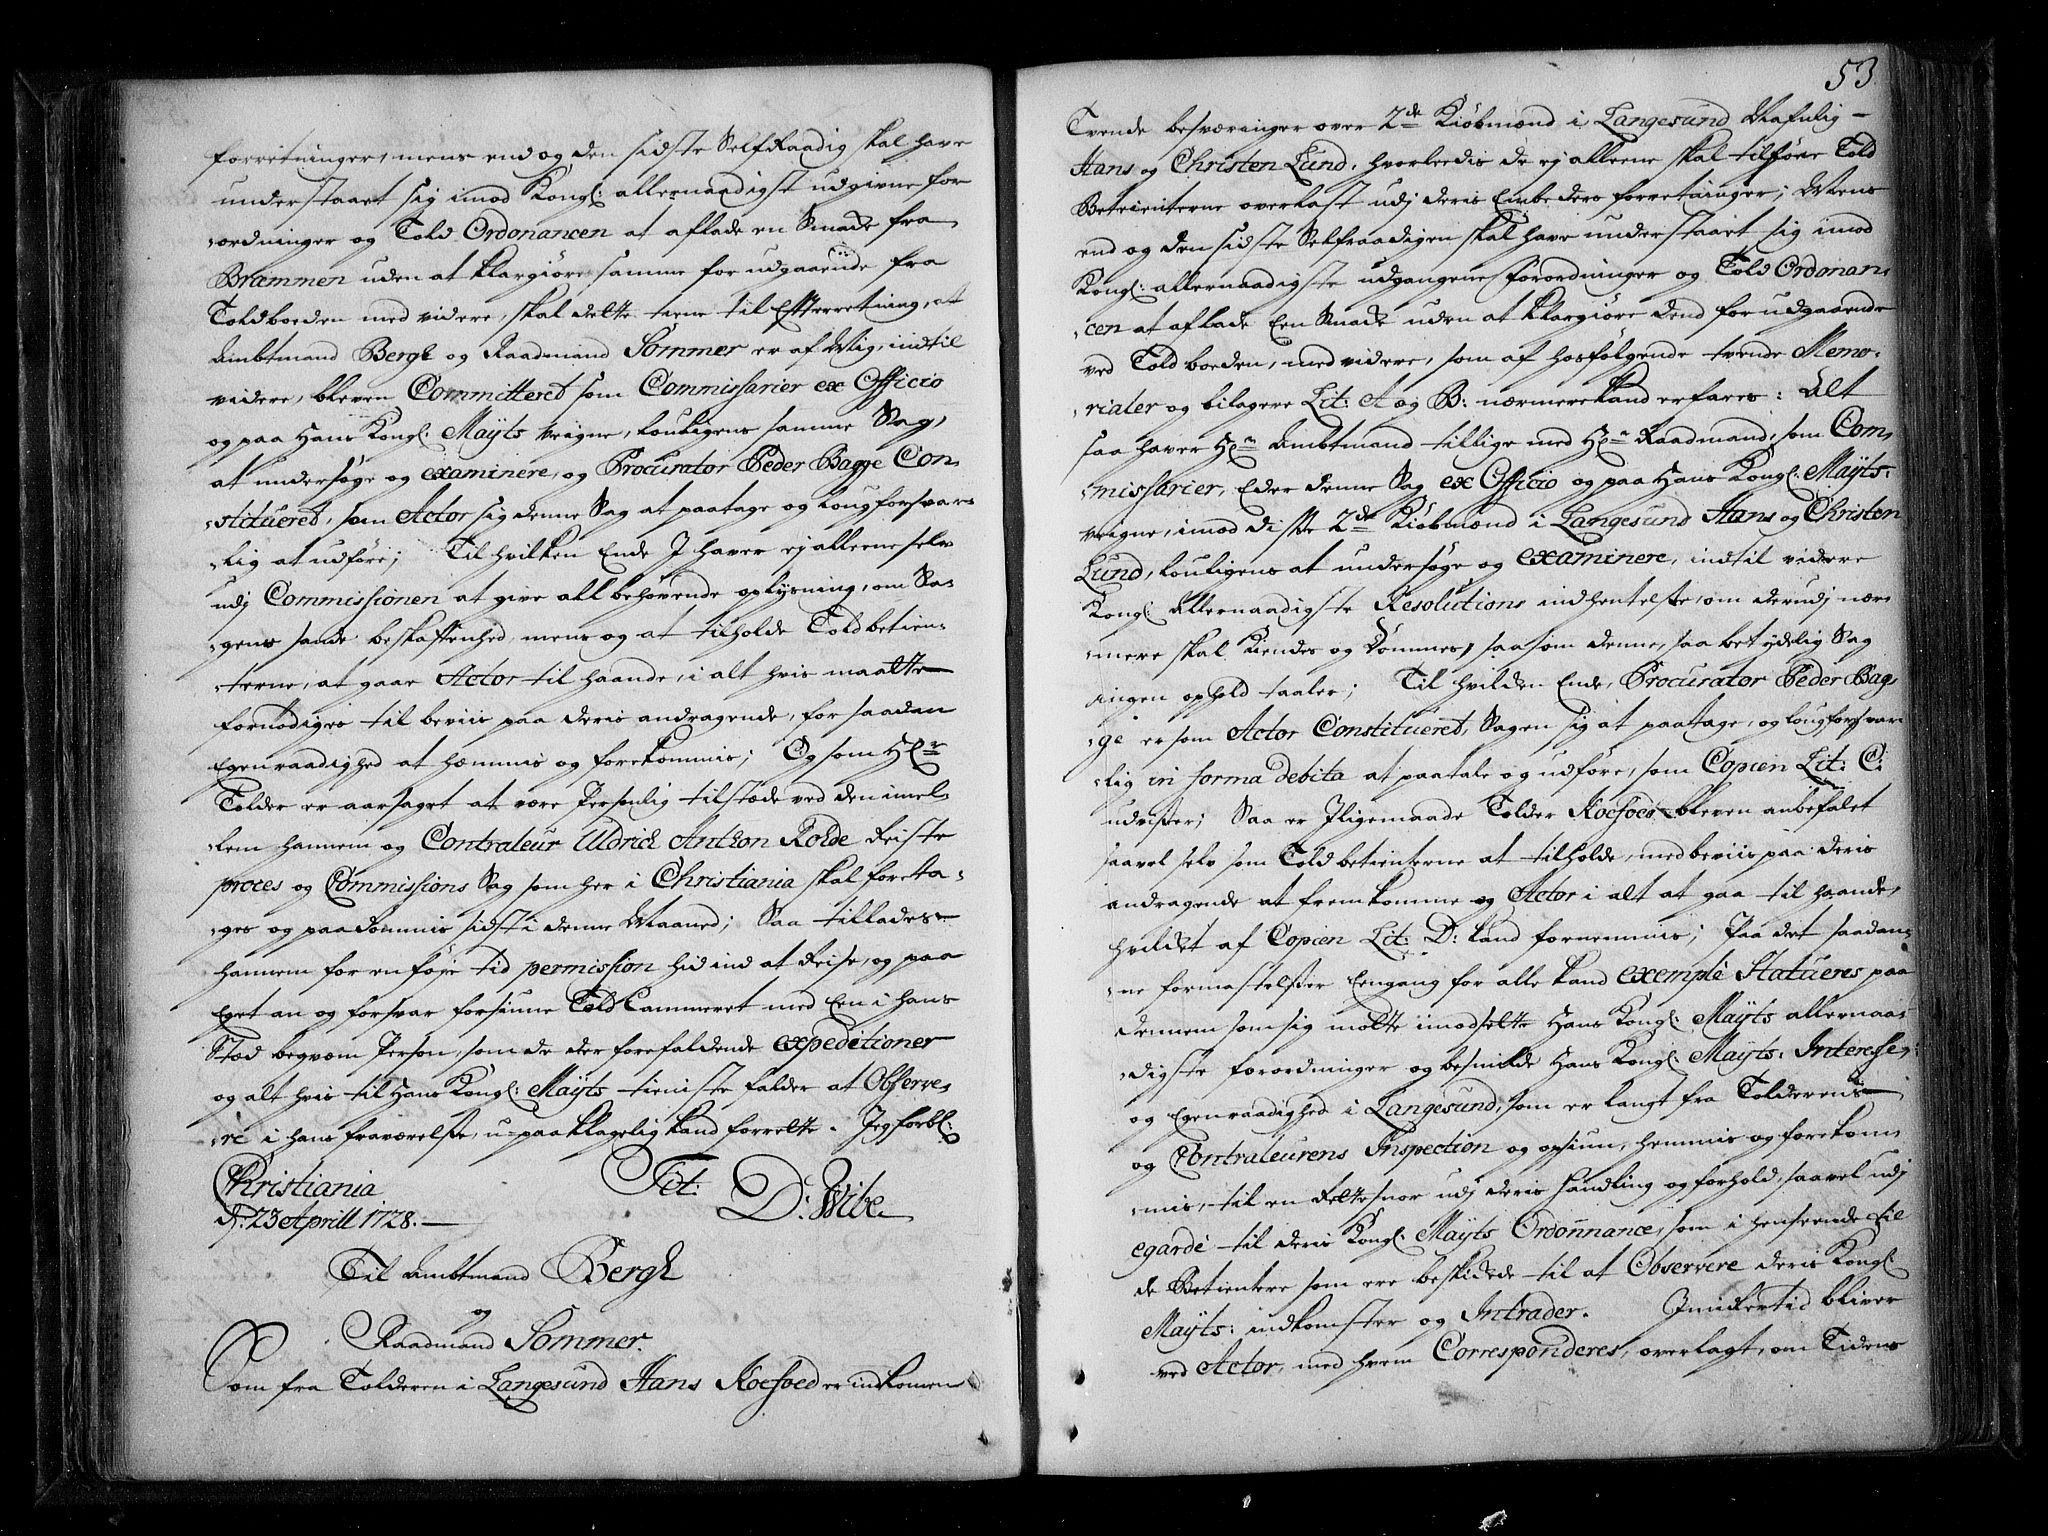 forretninger, mens end og den sidste Selfraadig skal have
understaaet sig imod Kongl: allernaadigst udgivne for
-ordninger og Told Ordonancen at aflade en Smacke fra
Brammen uden at klargiöre samme for udgaaende fra
Toldboeden med videre, skal dette tiene til Efterretning, at
Ambtmand Bergh og Raadmand Sommer er af Mig, indtil
videre, bleven Committeret som Commissarier ex Officio
og paa Hans Kongl: Mayts veigne, loulígens samme Sag,
at undersöge og examinere, og Procurator Peder Bagge Con-
-stitueret, som Actor sig denne Sag at paatage og lougforsvar-
-lig at udföre; Til hvilken Ende I haver ej alleene selv
udj Commissionen at give all behövende oplysning, om Sa-
-gens sande beskaffenhed, mens og at tilholde Toldbetien-
-terne, at gaae Actor til haande, i alt hvis maatte
fornödiges til beviis paa deris andragende, for saadan
Egenraadighed at hæmmis og forekommis; Og som Hr
Tolder er aarsaget at være Personlig tilstæde ved den imel-
-lem hannem og Contraleur Uldrich Anthon Rohde reiste
proces og Commissions Sag som her i Christiania skal foreta-
-ges og paadömmis sidst i denne Maaned; Saa tillades
hannem for en föje tid permission hid ind at reise, og paa
Eget an og forsvar forsiune Told Cammeret med Een i hans
Stæd begvæm Person, som de der forefaldende expeditioner
og alt hvis til Hans Kongl: Mayts tieniste falder at Observe-
-re i hans fraværelse, u-paaklagelig kand forrette. Jeg forbl:
Christiania Tit: D: Wibe
d. 23 Aprill 1728.
Til Ambtmand Bergh
og
Raadmand Sommer.
Som fra Tolderen i Langesund Hans Koefoed er indkomen
53
Tvende besværinger over 2de Kiöbmænd i Langesund Nafnlig
Hans og Christen Lund, hvorleedis de ej alleene skal tilföye Told
Betienterne overlast udj deris Embeders forretninger; Mens
end og den sidste Selfraadigen skal have understaaet sig imod
Kongl: allernaadigste udgangene forordninger og Told Ordonan-
-cen at aflade Een Smacke uden at klargiöre dend for udgaaende
ved Toldboeden, med videre, som af hosfölgende tvende Memo-
-rialer og bilagere Lit: A og B: nærmere kand erfares: Alt
saa haver Hr Ambtmand tillige med Hr Raadmand, som Com-
-missarier, Eder denne Sag ex Officio og paa Hans Kongl: Mayts:
veigne, imod disse 2de Kiöbmænd i Langesund Hans og Christen
Lund, louligens at undersöge og examinere, indtil videre
Kongl: Allernaadigste Resolutions indhentelse, om derudj nær-
-mere skal Kiendes og Dömmes, saasom denne, saa betydelig Sag
ingen ophold taaler; Til hvilcken Ende, Procurator Peder Bag-
-ge er som Actor Constitueret, Sagen sig at paatage, og lougforsvar-
-lig in forma debita at paatale og udföre, som Copien Lit: C:
udviser; Saa er Iligemaade Tolder Koefoed bleven anbefalet
saavel selv som Toldbetienterne at tilholde, med beviis paa deris
andragende at fremkomme og Actor i alt at gaa til haande,
hvilcket af Copien Lit: D: kand fornemmis; Paa det saadan-
-ne formastelser Eengang for alle kand exemple Statueres paa
dennem som sig motte imodsette Hans Kongl: Mayts allernaa-
-digste forordninger og besnilde Hans Kongl: Mayts: Interesse;
og Egenraadighed i Langesund, som er langt fra Tolderens
og Contraleurens Inspection og opsiun, hemmis og forekom-
-mis, til en rettesnor udj deris handling og forhold, saavel udj
egarde til deris Kongl: Mayts Ordonnance, som i henseende til
de Betientere som ere beskickede til at Observere deris Kongl:
Mayts: indkomster og Intrader. Imidlertid bliver
ved Actor, med hvem Corresponderes, overlagt, om Tidens